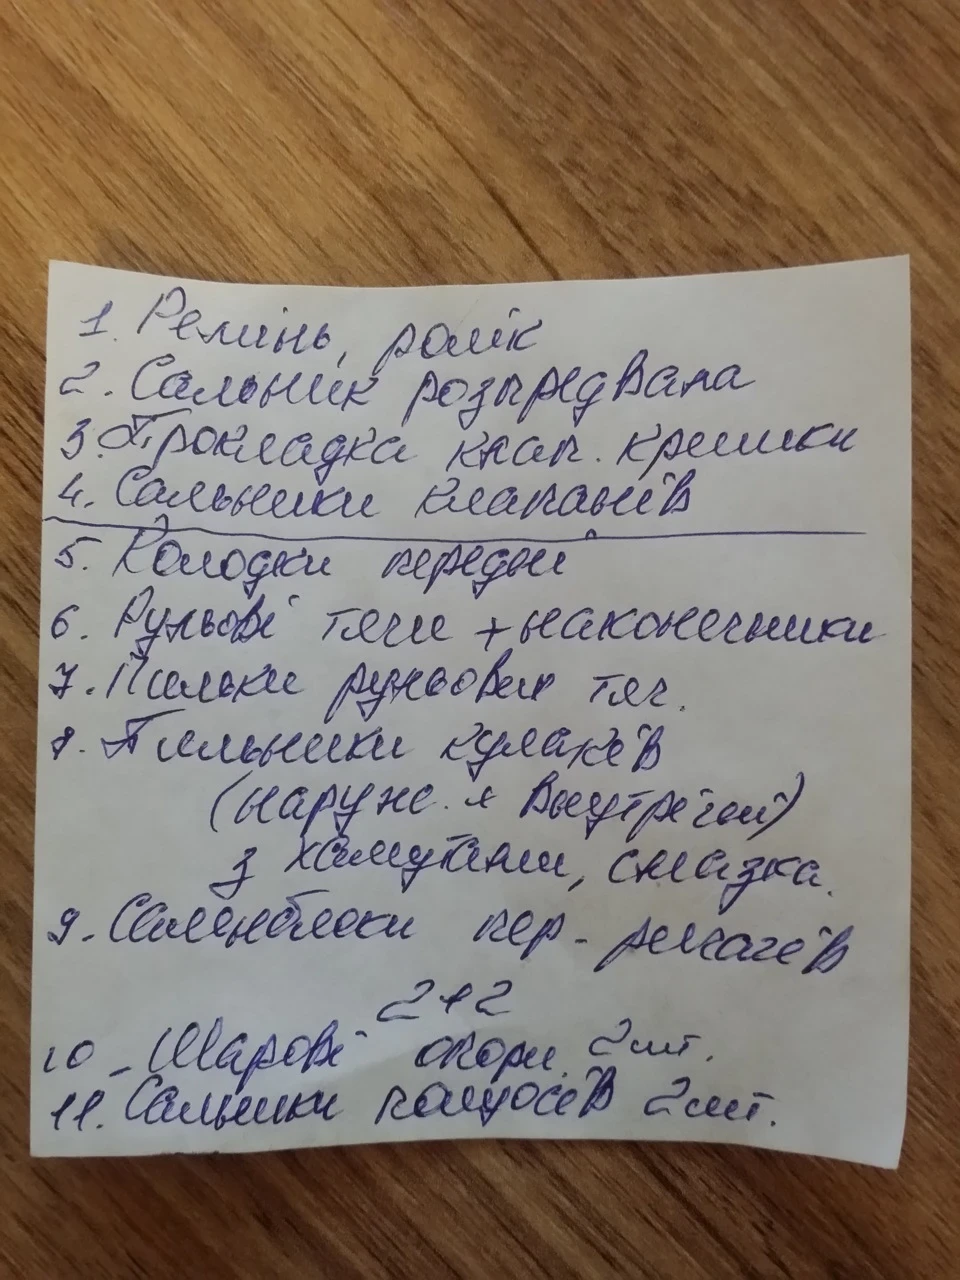 1. Ремінь, ролік
2. Сальник розпредвала
3. Прокладка клап. кришки
4. Сальники клапанів
5. Колодки передні
6. Рульові тяги + наконечники
7. Пильки рульових тяг.
8. Пильники кулаків
(наруж. и внутрегній)
з хамутами, смазка.
9. Саленблоки пер. ричагів
2+2
10 - Шарові опори 2шт.
11. Сальники полуосів 2шт.